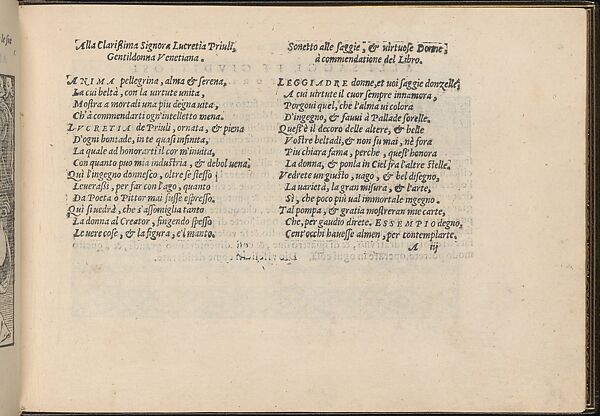 Alla Clarißima Signora Lucretia Priuli,
Gentildonna Venetiana.
ANIMA pellegrina, alma & serena,
La cui beltà, con la uirtute unita,
Mostra a mortali una piu degna uita,
Ch'à commendarti ogn'intelletto mena.
LVCRETIA de Priuli, ornata, & piena
D'ogni bontade, in te quasi infinita,
La quale ad honorarti il cor m'inuita,
Con quanto puo mia industria, & debol uena.
Qui l'ingegno donnesco, oltre se stesso
Leuerassi, per far con l'ago, quanto
Da Poeta ò Pittor mai fusse espresso.
Qui si uedrà, che s'assomiglia tanto
La donna al Creator, fingendo spesso
Le uere cose, & la figura, e'l manto.
Sonetto alle saggie, & uirtuose Donne,
à commendatione del Libro.
LEGGIADRE donne, et uoi saggie donzelle,
A cui uirtute il cuor sempre innamora,
Porgoui quel, che l'alma ui colora
D'ingegno, & sauui à Pallade sorelle.
Quest'è il decoro delle altere, & belle
Vostre beltadi, & non fu mai, nè fora
Piu chiara fama, perche, quest'honora
La donna, & ponla in Ciel fra l'altre stelle.
Vedrete un giusto, uago, & bel disegno,
La uarietà, la gran misura, & l'arte,
Sì, che poco più ual immortale ingegno.
Tal pompa, & gratia mostreran mie carte,
Che, per gaudio direte. ESSEMPIO degno,
Cent'occhi hauesse almen, per contemplarte.
A iij